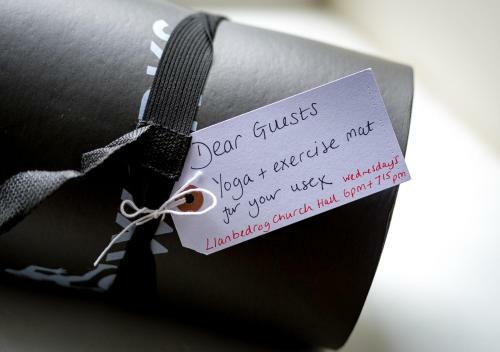 Dear Guests
Yoga + exercise mat
for your use x
Wednesdays
Llanbedrog Church Hall 6pm + 7.15pm